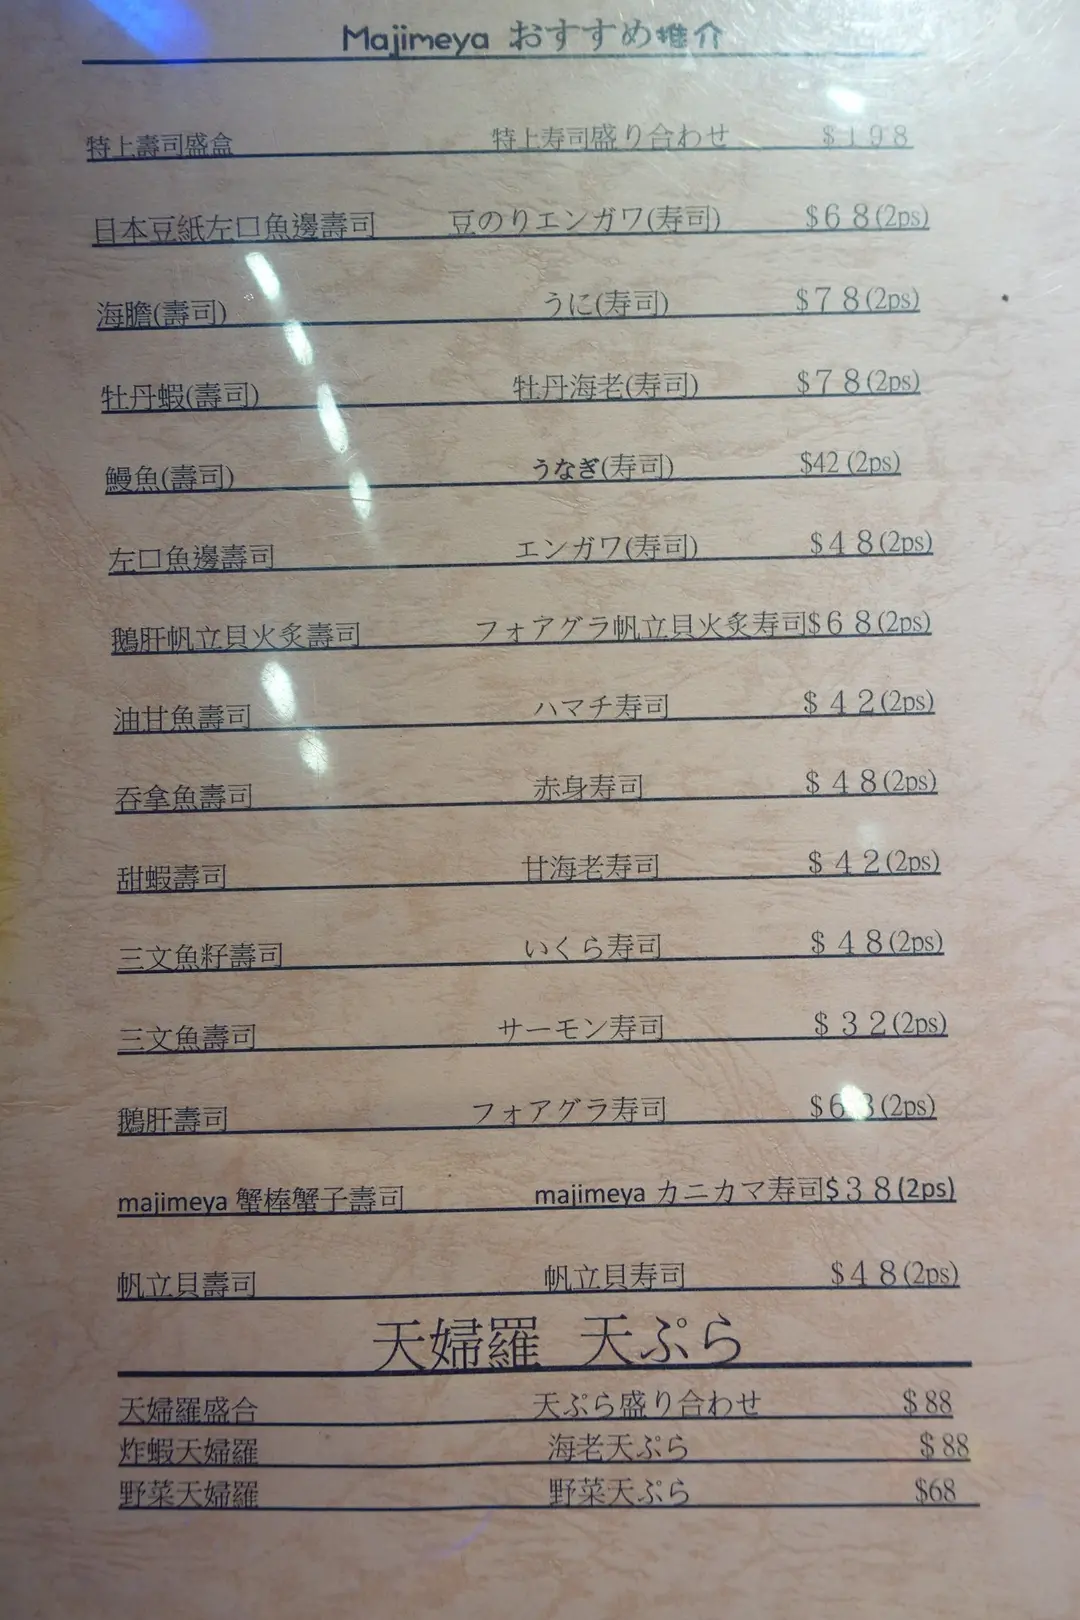 Majimeya おすすめ推介
特上壽司盛盒 特上寿司盛り合わせ $198
日本豆紙左口魚邊壽司 豆のりエンガワ(寿司) $68(2ps)
海膽(壽司) うに(寿司) $78(2ps)
牡丹蝦(壽司) 牡丹海老(寿司) $78(2ps)
鰻魚(壽司) うなぎ(寿司) $42 (2ps)
左口魚邊壽司 エンガワ(寿司) $48(2ps)
鵝肝帆立貝火炙壽司 フォアグラ帆立貝火炙寿司$68(2ps)
油甘魚壽司 ハマチ寿司 $42(2ps)
吞拿魚壽司 赤身寿司 $48(2ps)
甜蝦壽司 甘海老寿司 $42(2ps)
三文魚籽壽司 いくら寿司 $48(2ps)
三文魚壽司 サーモン寿司 $32(2ps)
鵝肝壽司 フォアグラ寿司 (2ps)
majimeya 蟹棒蟹子壽司 majimeya カニカマ寿司$38(2ps)
帆立貝壽司 帆立貝寿司 $48(2ps)
天婦羅 天ぷら
天婦羅盛合 天ぷら盛り合わせ $88
炸蝦天婦羅 海老天ぷら $88
野菜天婦羅 野菜天ぷら $68